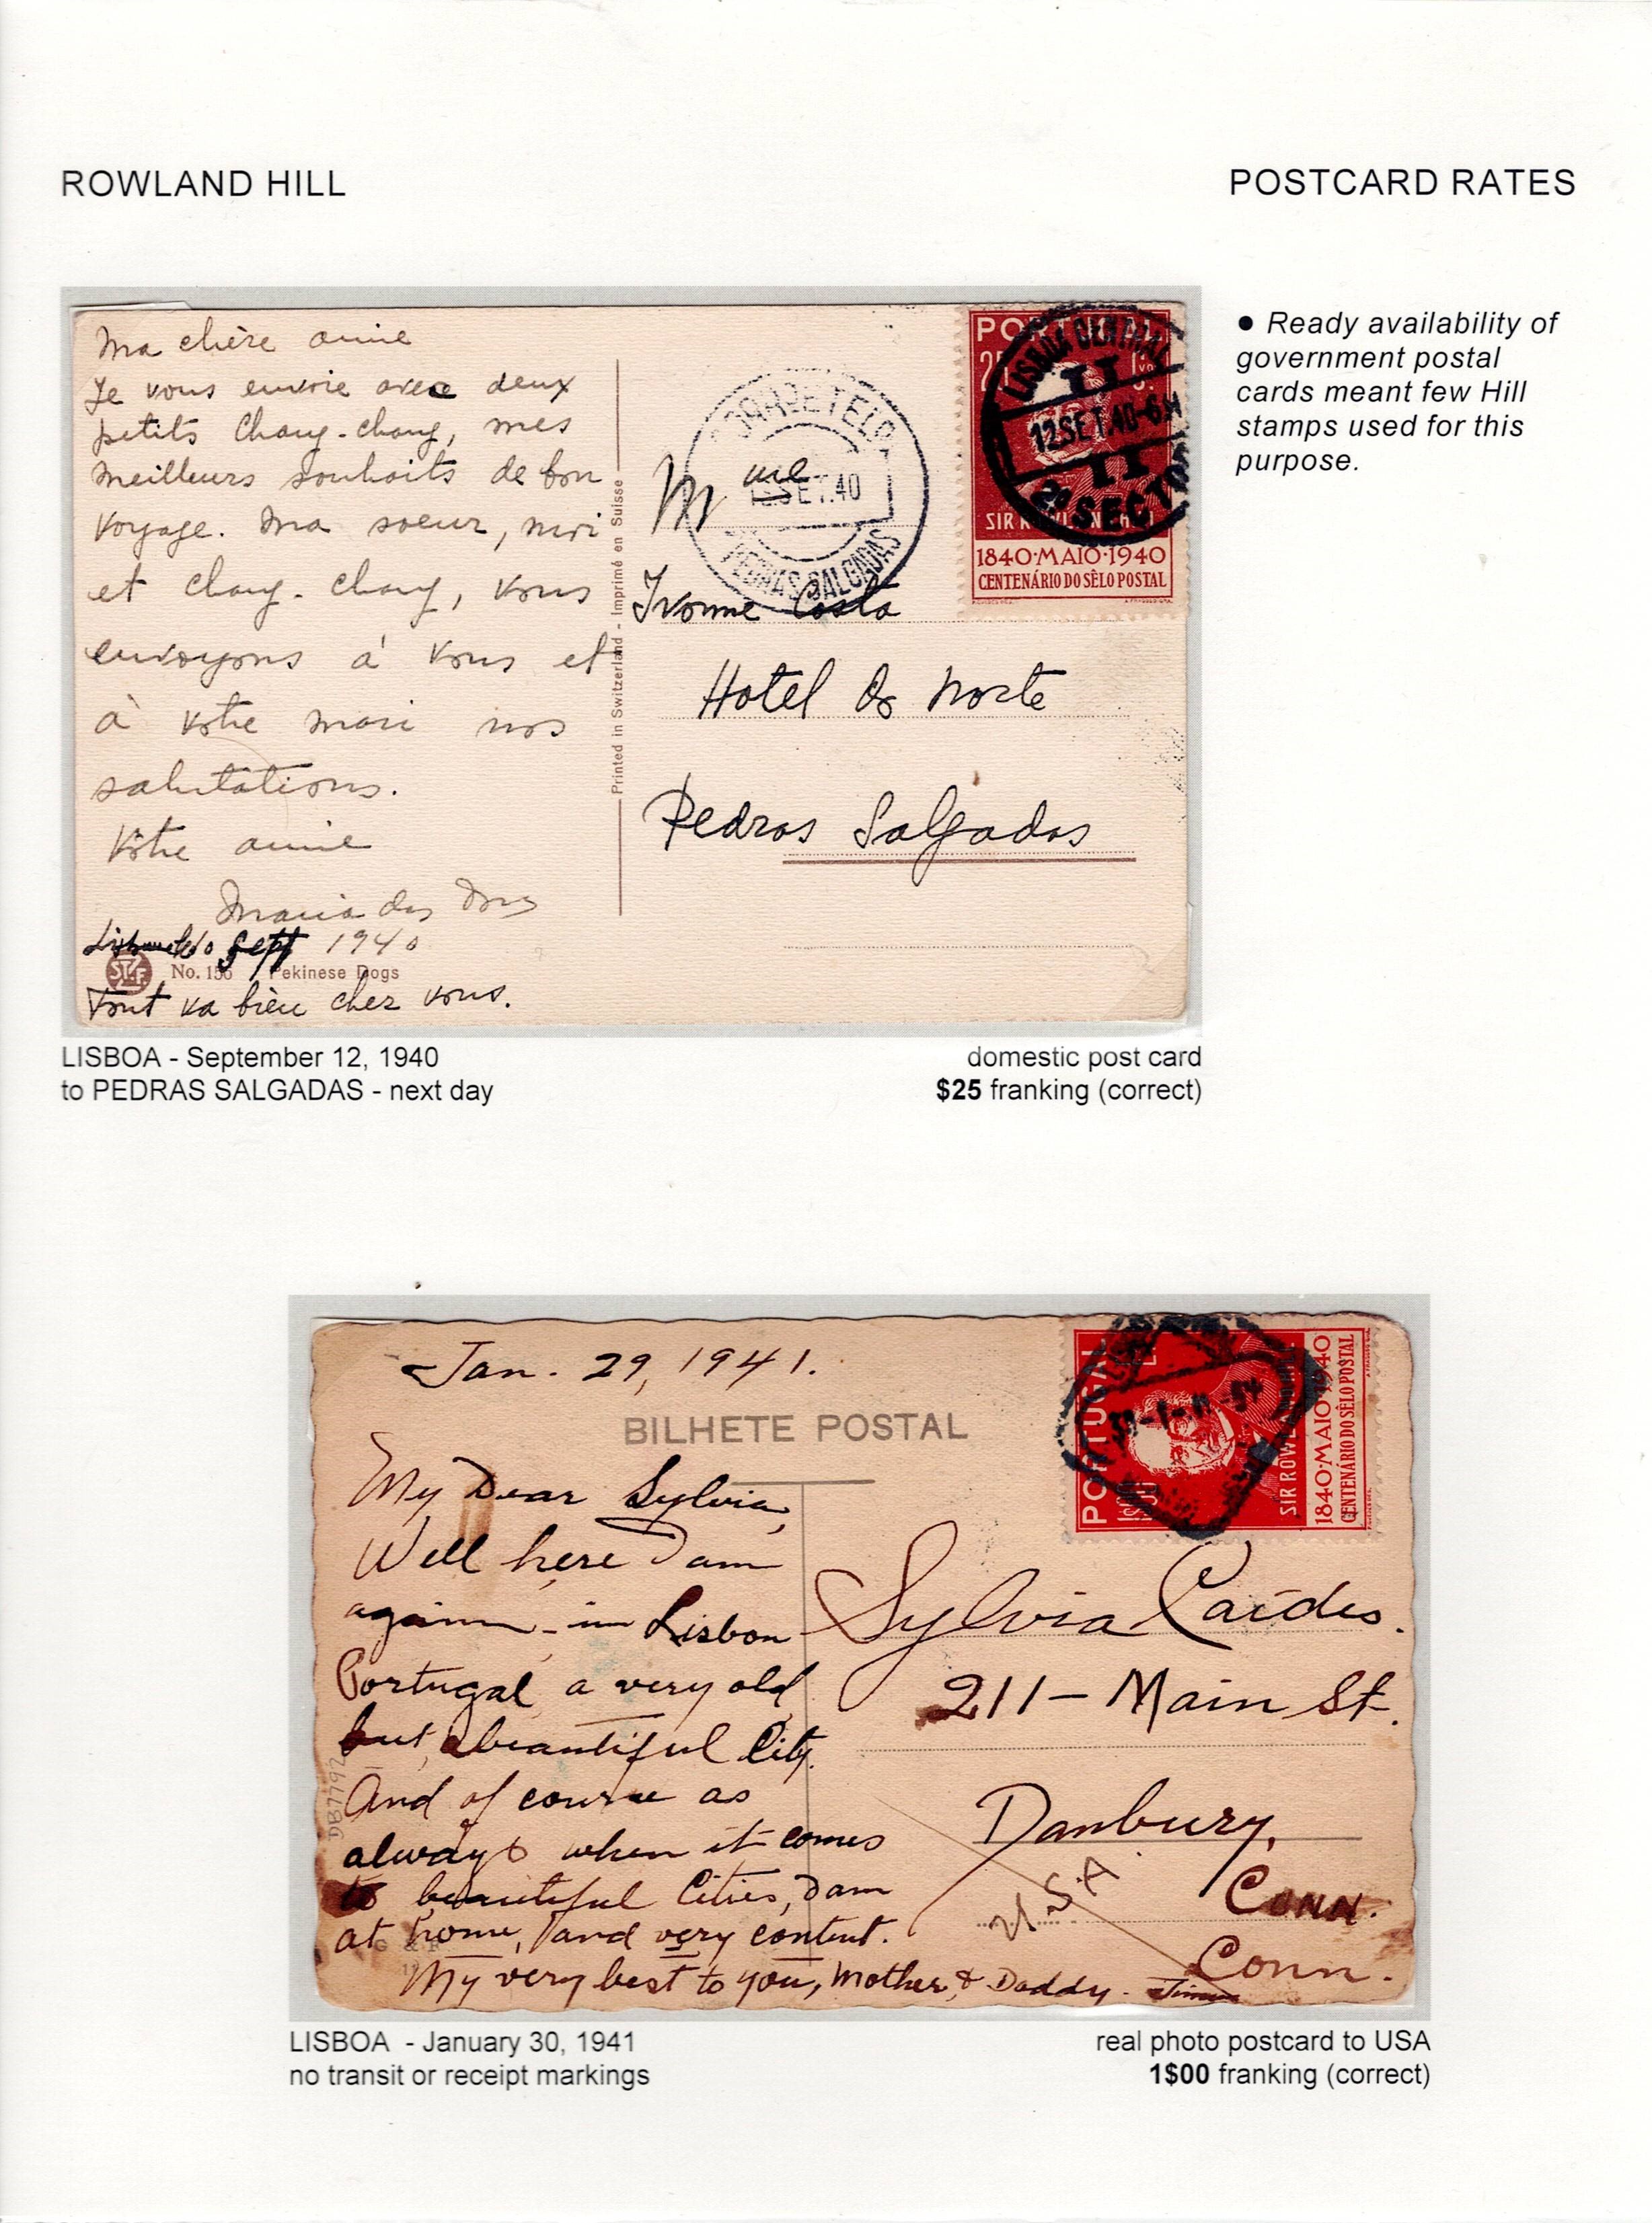 ROWLAND HILL
POSTCARD RATES
Ma chère amie
Je vous envoie avec deux
petits Chang-chang, mes
meilleurs souhaits de bon
voyage. Ma soeur, moi
et chang-chang, vous
envoyons à vous et
à votre mari nos
salutations.
Votre amie
Maria das
Sept 1940
No. 156 Pekinese Dogs
Tout va bien chez vous.
Printed in Switzerland - Imprimé en Suisse
SET.40
PEDRAS SALGADAS
PORTUGAL
LISBOA CENTRAL
II
12SET.40-6
II
2ª SECÇÃO
SIR ROWLAND HILL
1840·MAIO·1940
CENTENÁRIO DO SÊLO POSTAL
Mme
Ivonne Costa
Hotel do Norte
Pedras Salgadas
● Ready availability of
government postal
cards meant few Hill
stamps used for this
purpose.
LISBOA - September 12, 1940
to PEDRAS SALGADAS - next day
domestic post card
$25 franking (correct)
Jan. 29, 1941.
BILHETE POSTAL
My Dear Sylvia,
Well here I am
again - in Lisbon
Portugal a very old
but, a beautiful City.
And of course as
always when it comes
to beautiful Cities, I am
at home, and very content.
My very best to you, Mother, & Daddy.
DB7792
PORTUGAL
SIR ROWLAND HILL
1840·MAIO·1940
CENTENÁRIO DO SÊLO POSTAL
Sylvia
211 - Main St.
Danbury,
Conn.
U.S.A
Conn.
LISBOA - January 30, 1941
no transit or receipt markings
real photo postcard to USA
1$00 franking (correct)